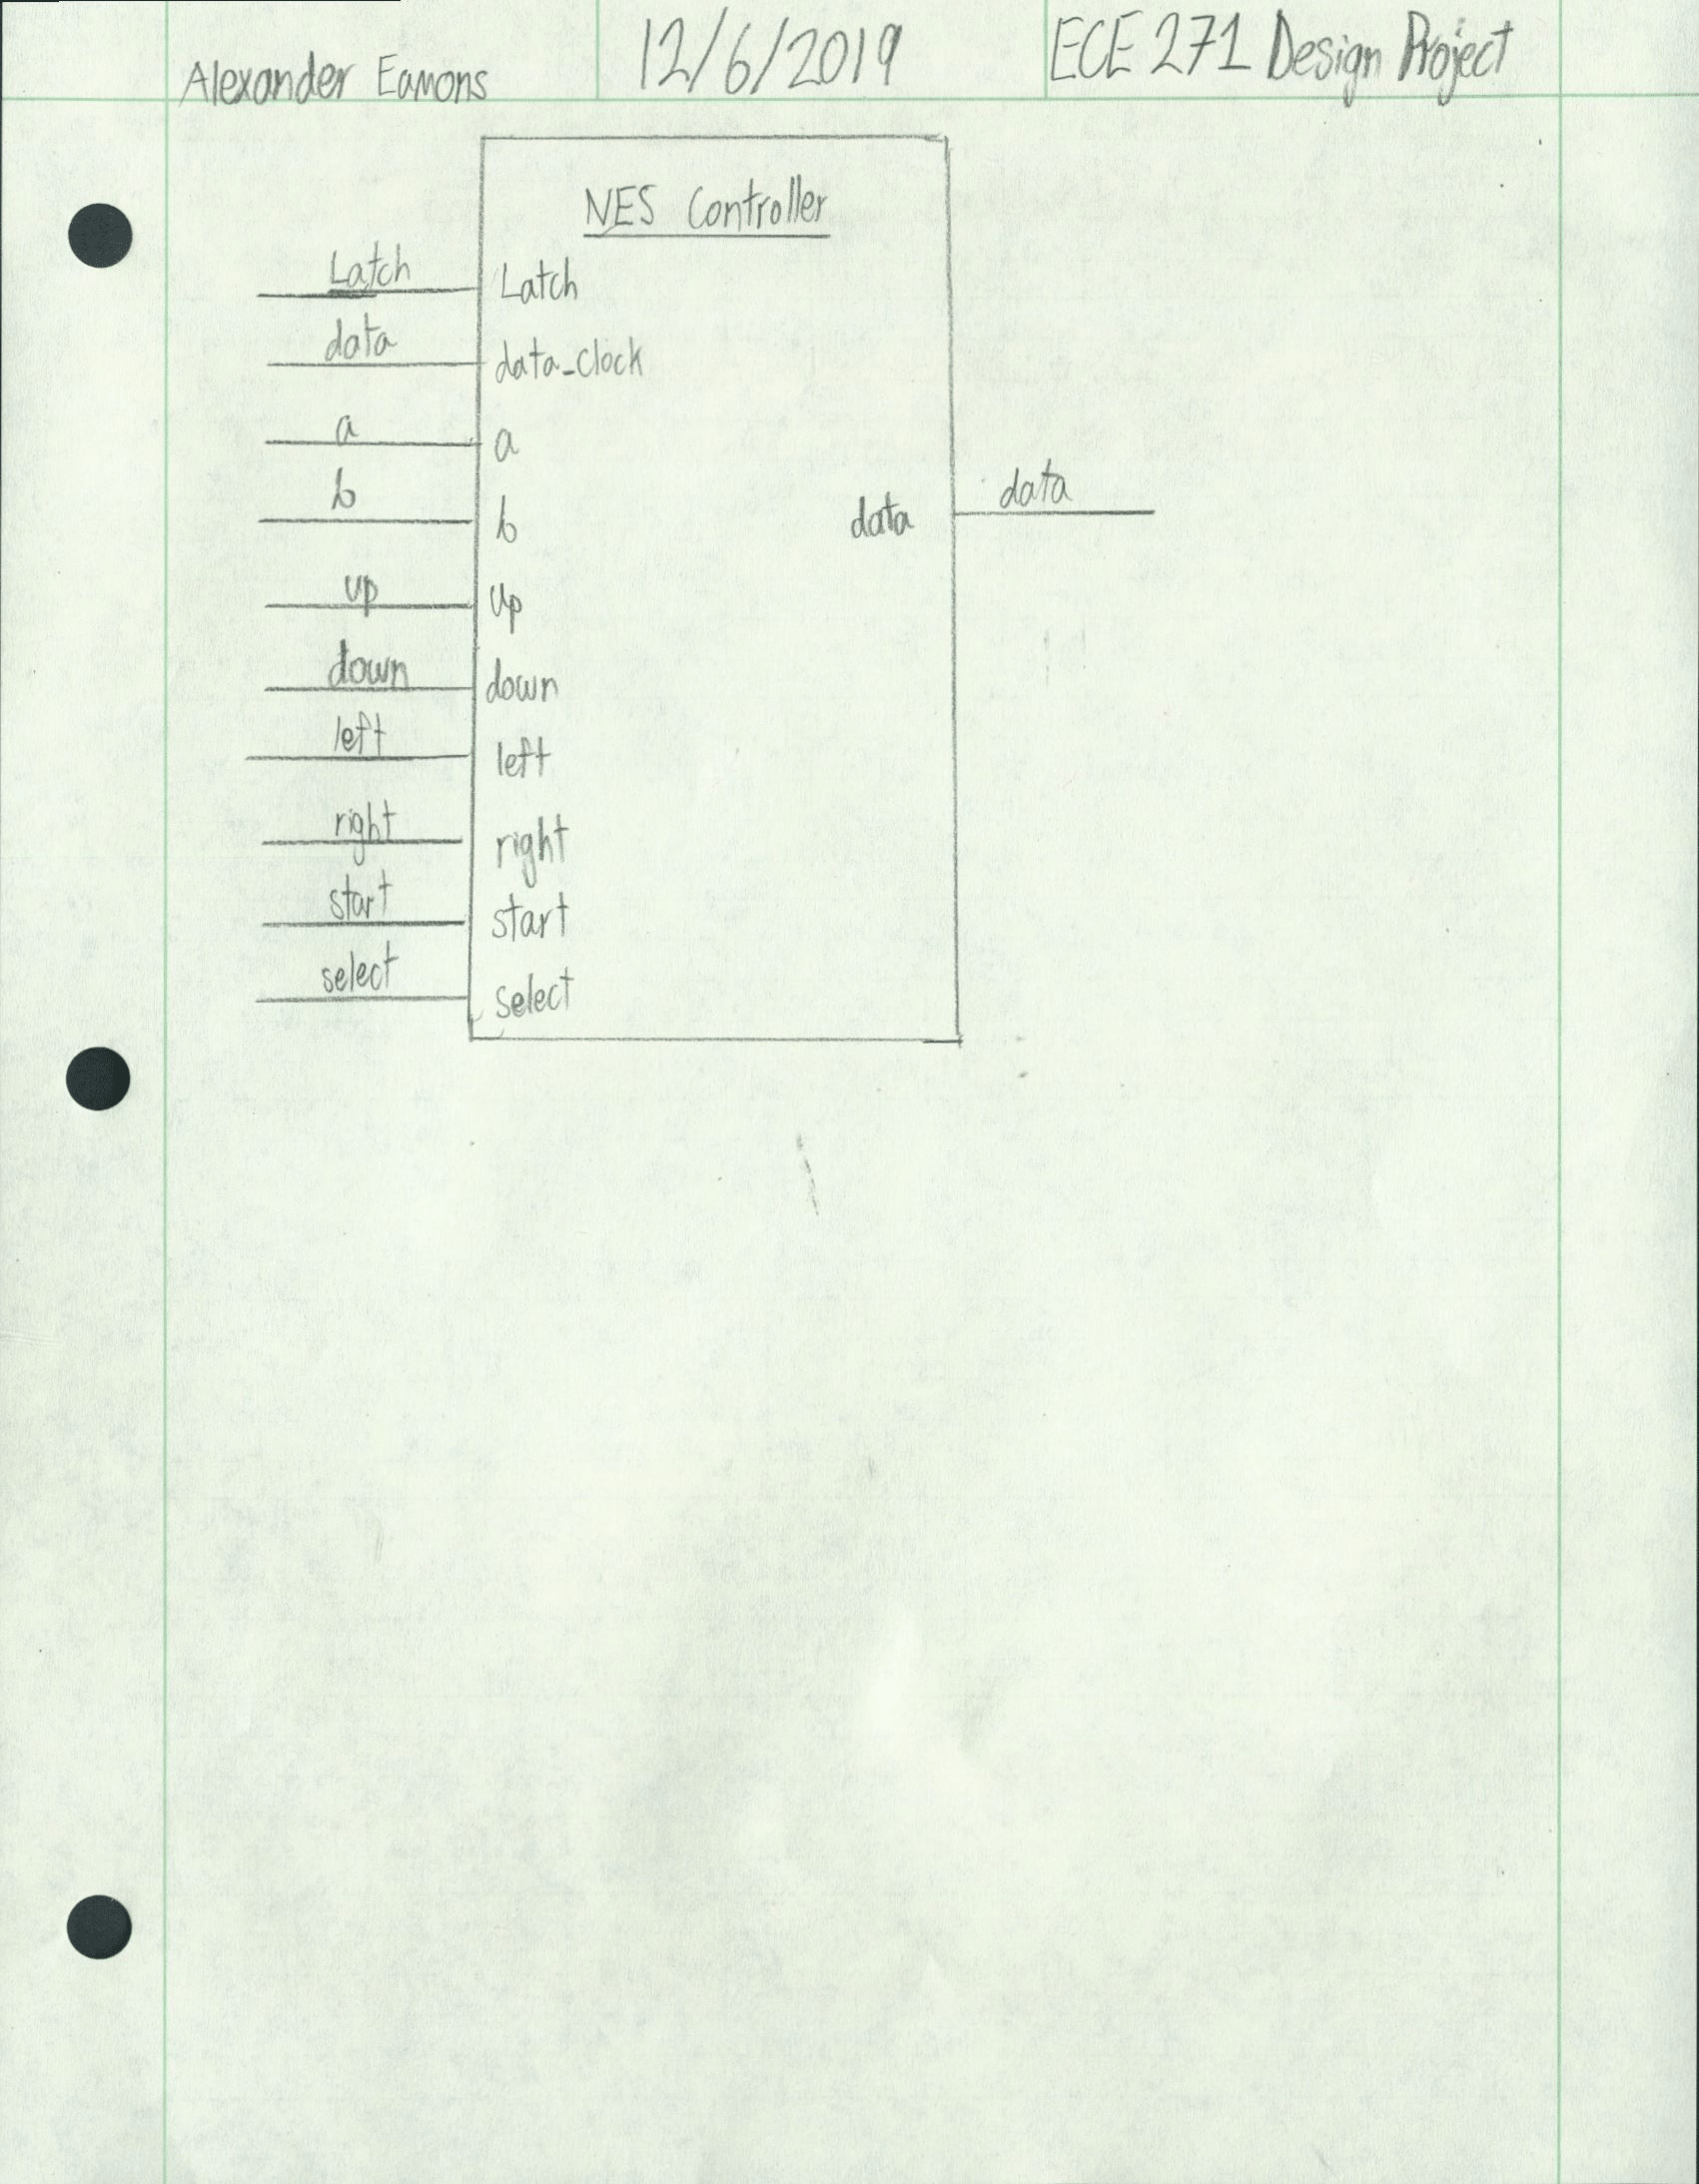 Alexander Eamons 12/6/2019 ECE 271 Design Project
NES Controller
Latch Latch
data data_clock
a a
b b
data data
up up
down down
left left
right right
start start
select select